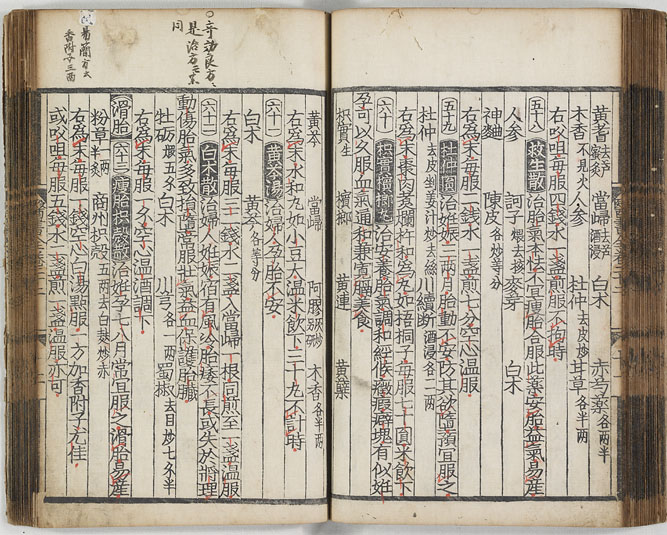 黃耆去芦蜜炙 當歸去芦酒浸 白朮 赤芍藥各両半
木香不見火 杜仲去皮炒 甘草各一両
右㕮咀每服四錢水一盞煎服不拘時
五十八 救生散 治胎氣本怯不宜瘦胎合服此藥安胎益氣易産
人参 訶子煨去核 麥芽 白朮
神麯 陳皮各炒等分
右為末每服二錢水一盞煎七分空心温服
五十九 杜仲圓 治妊娠三両月胎動不安防其欲墮預宜服之
杜仲去皮剉姜汁炒去絲 川續断酒浸各二両
右為末棗肉煮爛杵和為丸如梧桐子每服七十圓米飲下
六十 枳實檳榔丸 治安養胎氣調和經候癥瘕癖塊有似妊
孕可以久服血氣通和兼寛膈美食
枳實生 檳榔 黄連 黄蘗
○奇効良方、
同
易簡方云
香附子三両
黄芩 當歸 阿膠碎炒 木香各半両
右為末水和丸如小豆大温米飲下三十丸不計時
六十一 黄芩湯 治婦人孕胎不安
白朮 黄芩各等分
右為末每服三錢水二盞入當歸一根同煎至一盞温服
六十二 白朮散 治婦人妊娠宿有風冷胎痿不長或失於將理
動傷胎氣多致損墮常服壮氣益血保護胎臓
牡蛎煨五分 白朮 川芎各一両 蜀椒去目炒七分半
右為末每服一錢空心温酒調下
滑胎 六十三 瘦胎枳殻散 治妊孕七八月常宜服之滑胎易産
粉草一両半炙 商州枳殻五両去白麸炒赤
右為末每服一錢空心白湯點服一方加香附子尤佳
或㕮咀每服五錢水一盞煎一盞温服亦可